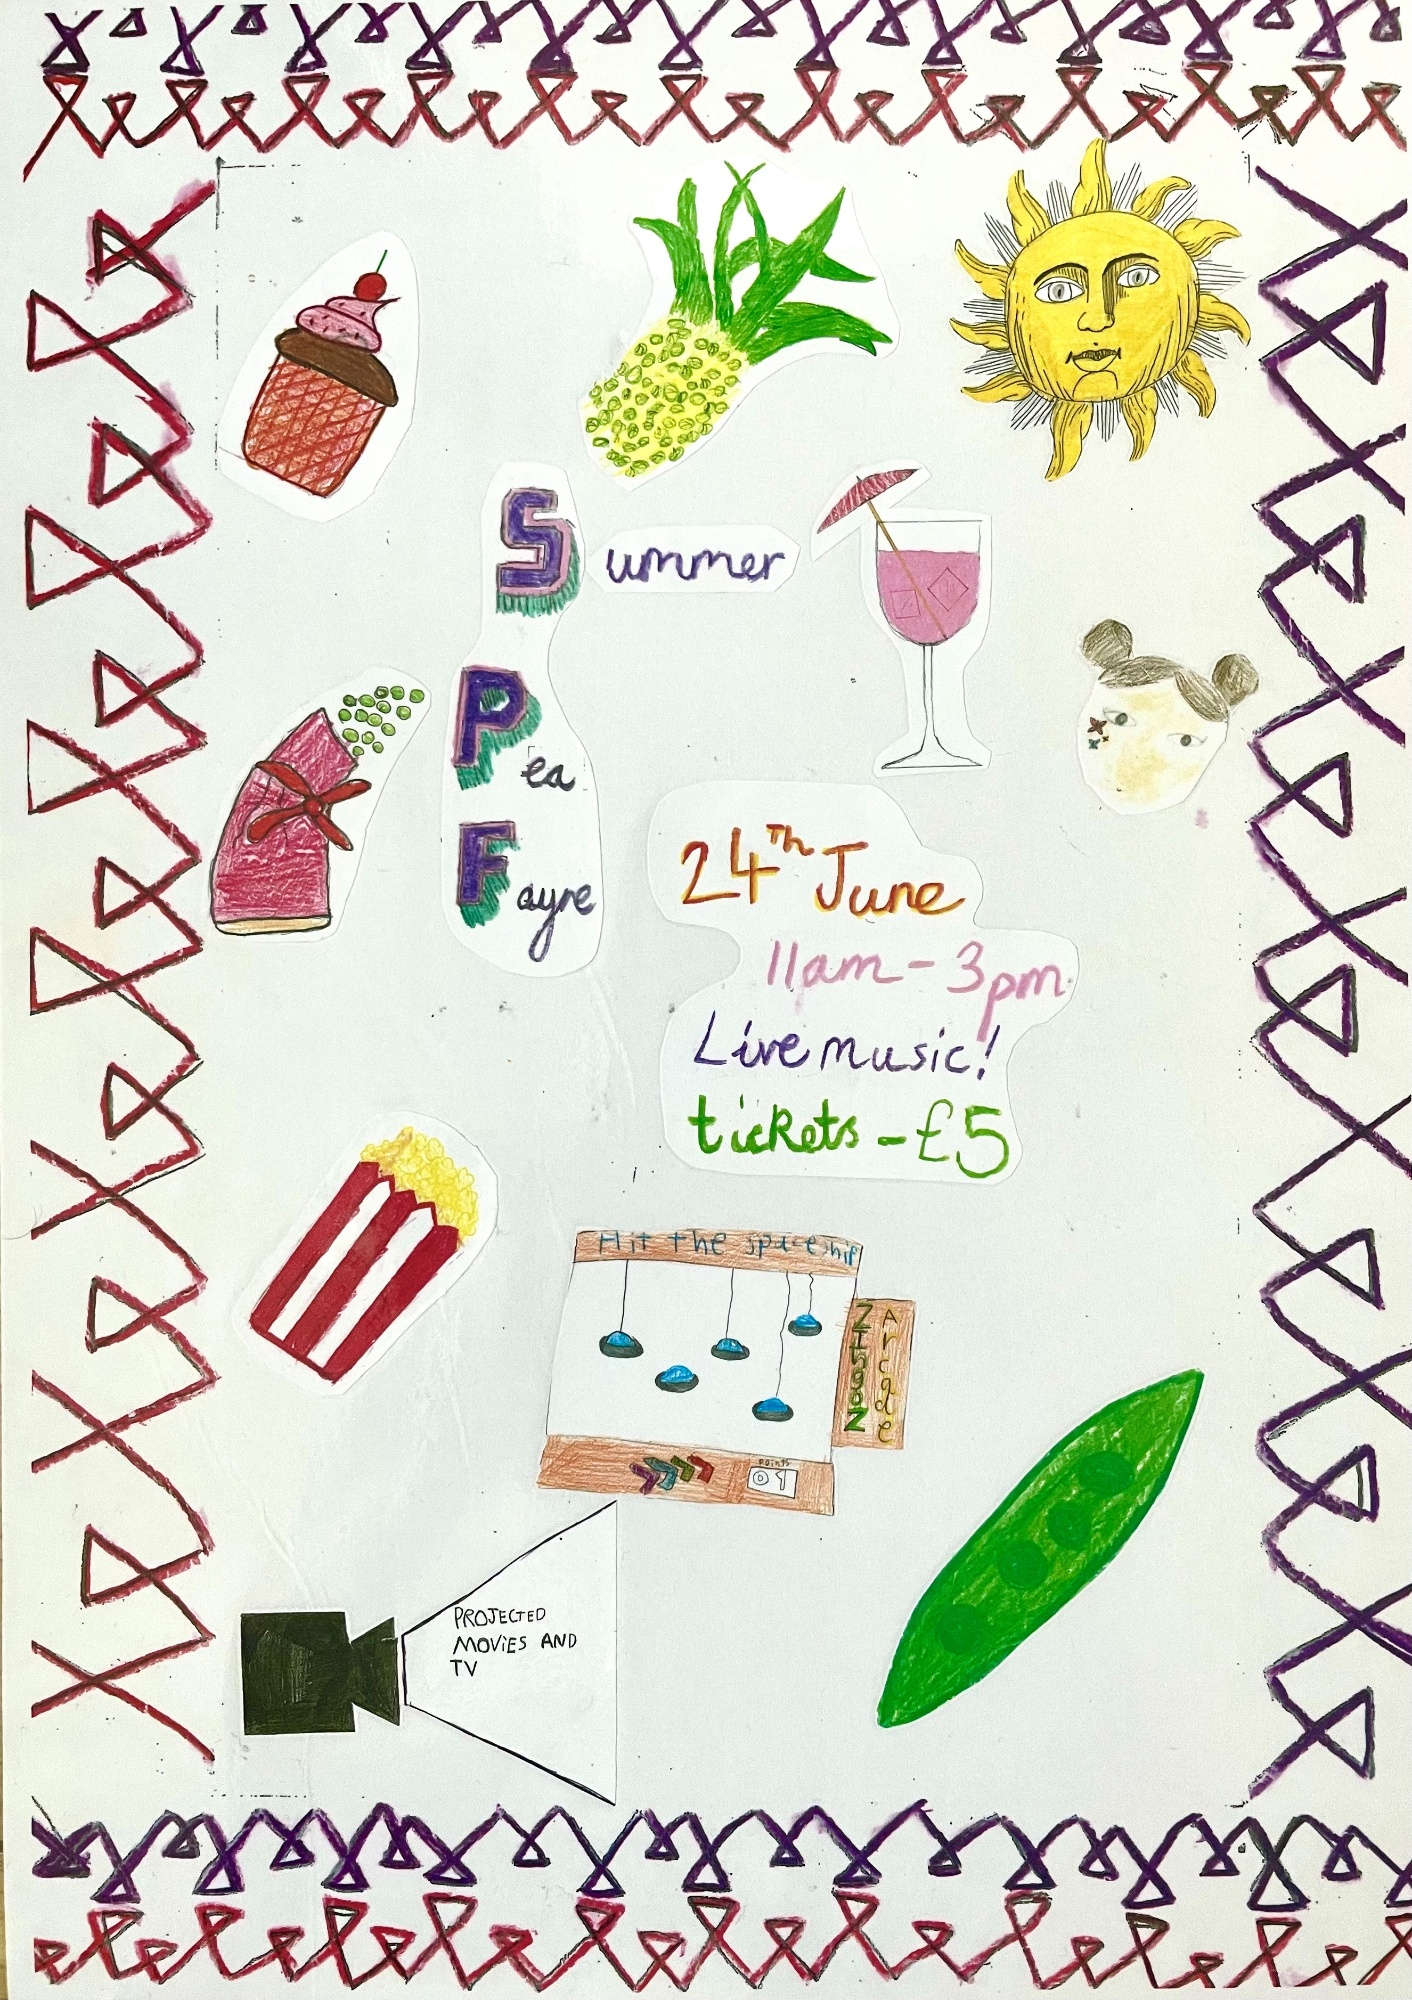 Summer
Pea
Fayre
24th June
11am - 3pm
Live music!
tickets - £5
Hit the spaceship
ZingoZ
Arcade
points
01
PROJECTED
MOVIES AND
TV